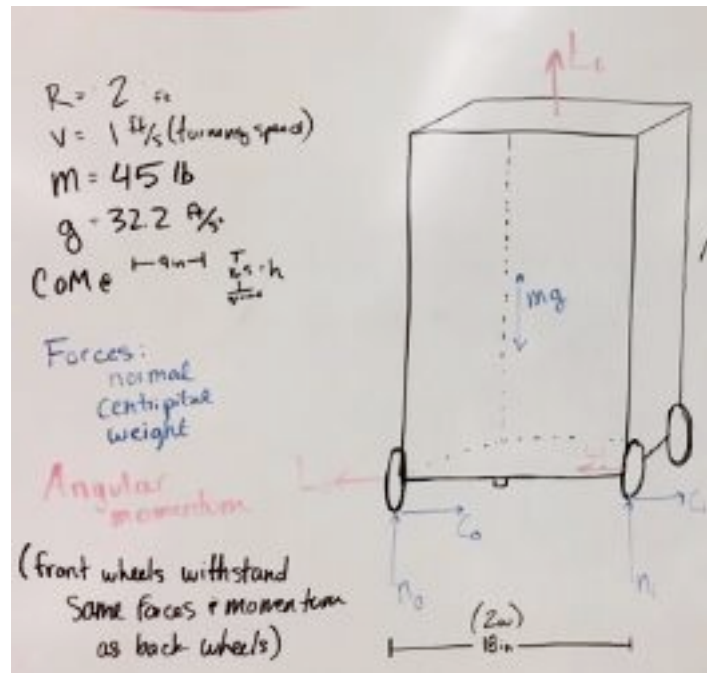 R = 2 ft
v = 1 ft/s (turning speed)
m = 45 lb
g = 32.2 ft/s²
CoM @ 9in h
Forces:
normal
centripital
weight
Angular
momentum
(front wheels withstand
same forces & momentum
as back wheels)
mg
L
n₀
(2w)
18in